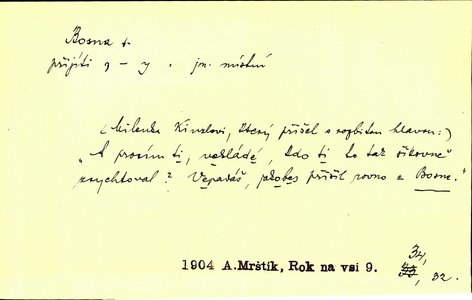 Bosna ž.
přijíti 9 – y . jm. místní
(Milenka Kinzlovi, který přišel s rozbitou hlavou:)
„A prosím ti, vokládé, kdo ti to tak šikovně
zrychtoval? Vepadáš, jakobes přišil rovno z Bosne."
1904 A.Mrštík, Rok na vsi 9.
34,
32.